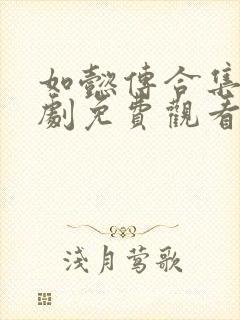 如懿傳合集
劇免費觀看
淺月莺歌